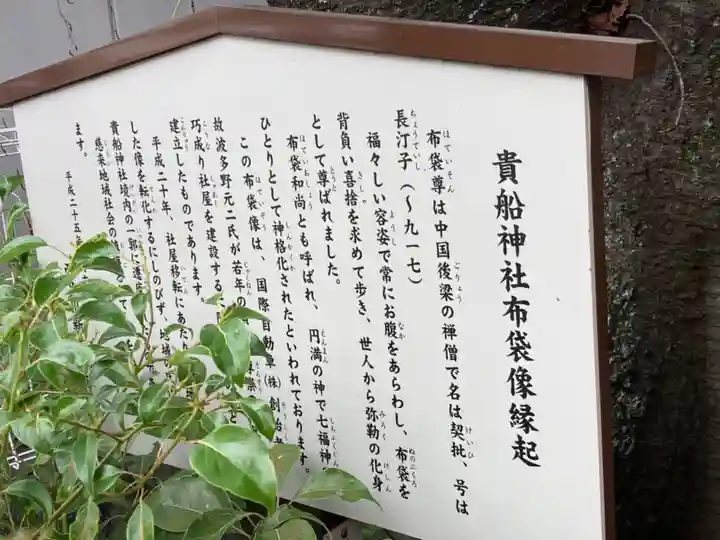 貴船神社布袋像縁起
布袋尊は中国後梁の禅僧で名は契批、号は
長汀子(〜九一七)
福々しい容姿で常にお腹をあらわし、布袋を
背負い喜捨を求めて歩き、世人から弥勒の化身
として尊ばれました。
布袋和尚とも呼ばれ、円満の神で七福神
ひとりとして神格化されたといわれております。
この布袋像は、国際自動車(株)創始者
故波多野元二氏が若年の
巧成り社屋を建設する
建立したものであります
平成二十年、社屋移転にあた
した像を転化するにしのびず、地域
貴船神社境内の一郭に遷座
慈来地域社会の
ます。
平成二十五年